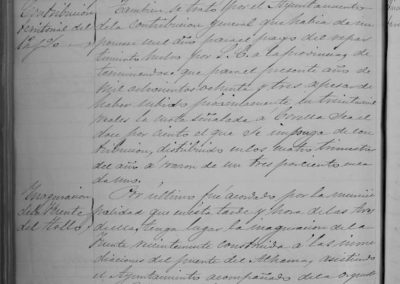 Contribución
territorial del
También se trató por el Ayuntamiento
de la contribución general que había de im-
ponerse en el año para el pago del repar
timiento hecho por S. E. a la provincia, de
terminandose que para el presente año de
mil ochocientos ochenta y tres apesar de
haber subido proximamente, los treinta mil
reales la cuota señalada a Corella sea el
doce por ciento el que se imponga de con
tribución, distribuido en los cuatro trimestres
del año a razon de un tres por ciento en ca
da uno.
Inauguración
de la Fuente
del
Por último fué acordado por la munici
palidad que en esta tarde y hora de las tres
de ella, tenga lugar la inauguracion de la
Fuente recientemente construida a las inme
diaciones del puente del Alhama, asistiendo
el Ayuntamiento acompañado de la